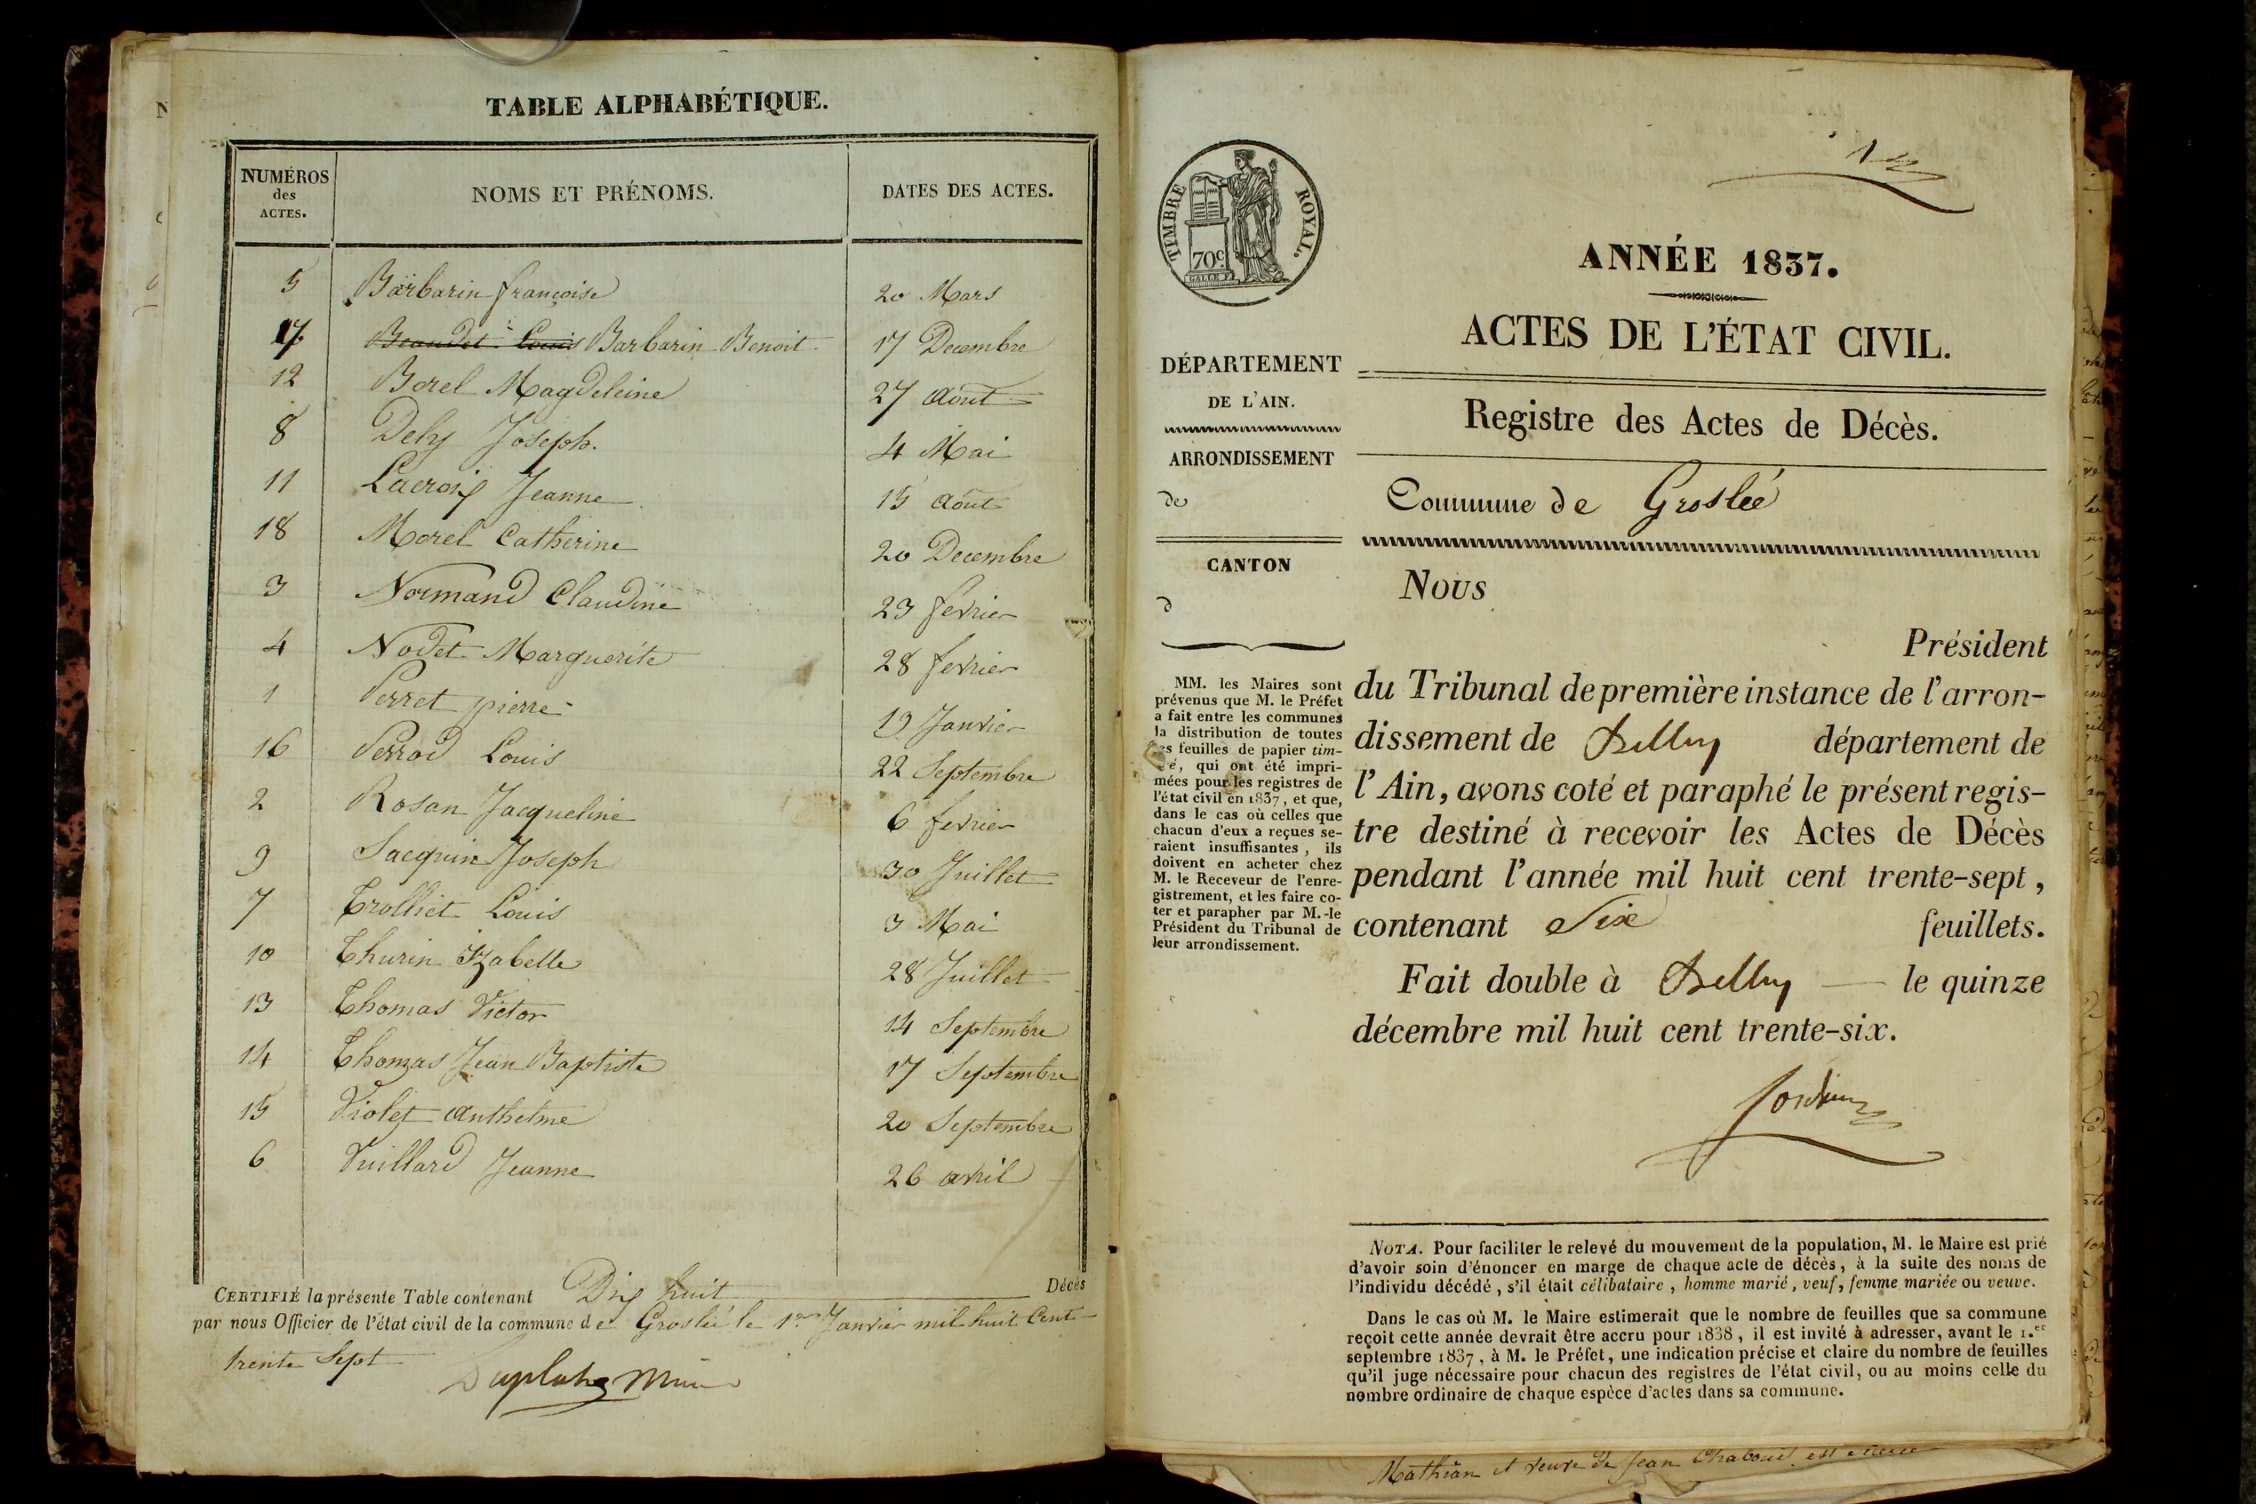 TABLE ALPHABÉTIQUE.
NUMÉROS des ACTES. NOMS ET PRÉNOMS. DATES DES ACTES.
5 Barbarin françoise 20 Mars
17 Beaudet Louis Barbarin Benoit 17 Decembre
12 Borel Magdeleine 27 aout
8 Dely Joseph. 4 Mai
11 Lacroix Jeanne 15 aout
18 Morel Catherine 20 Decembre
3 Normand Claudine 23 fevrier
4 Nodet Marguerite 28 fevrier
1 Perret pierre 19 Janvier
16 Perrod Louis 22 Septembre
2 Rosan Jacqueline 6 fevrier
9 Sacquin Joseph 30 Juillet
7 Trolliet Louis 3 Mai
10 Thurin Izabelle 28 Juillet
13 Thomas Victor 14 Septembre
14 Thomas Jean Baptiste 17 Septembre
15 Violet anthelme 20 Septembre
6 Vuillard Jeanne 26 avril
CERTIFIÉ la présente Table contenant Dix huit Décès
par nous Officier de l'état civil de la commune de Groslée le 1er Janvier mil huit Cent
trente Sept
TIMBRE ROYAL.
70c
DÉPARTEMENT
DE L'AIN.
ARRONDISSEMENT
de
CANTON
d
MM. les Maires sont
prévenus que M. le Préfet
a fait entre les communes
la distribution de toutes
feuilles de papier tim-
é, qui ont été impri-
mées pour les registres de
l'état civil en 1837, et que,
dans le cas où celles que
chacun d'eux a reçues se-
raient insuffisantes, ils
doivent en acheter chez
M. le Receveur de l'enre-
gistrement, et les faire co-
ter et parapher par M.-le
Président du Tribunal de
leur arrondissement.
1
ANNÉE 1837.
ACTES DE L'ÉTAT CIVIL.
Registre des Actes de Décès.
Commune de Groslée
Nous
Président
du Tribunal de première instance de l'arron-
dissement de Belley département de
l'Ain, avons coté et paraphé le présent regis-
tre destiné à recevoir les Actes de Décès
pendant l'année mil huit cent trente-sept,
contenant Six feuillets.
Fait double à Belley — le quinze
décembre mil huit cent trente-six.
NOTA. Pour faciliter le relevé du mouvement de la population, M. le Maire est prié
d'avoir soin d'énoncer en marge de chaque acte de décès, à la suite des noms de
l'individu décédé, s'il était célibataire, homme marié, veuf, femme mariée ou veuve.
Dans le cas où M. le Maire estimerait que le nombre de feuilles que sa commune
reçoit cette année devrait être accru pour 1838, il est invité à adresser, avant le 1.er
septembre 1837, à M. le Préfet, une indication précise et claire du nombre de feuilles
qu'il juge nécessaire pour chacun des registres de l'état civil, ou au moins celle du
nombre ordinaire de chaque espèce d'actes dans sa commune.
Mathian et veuve de Jean